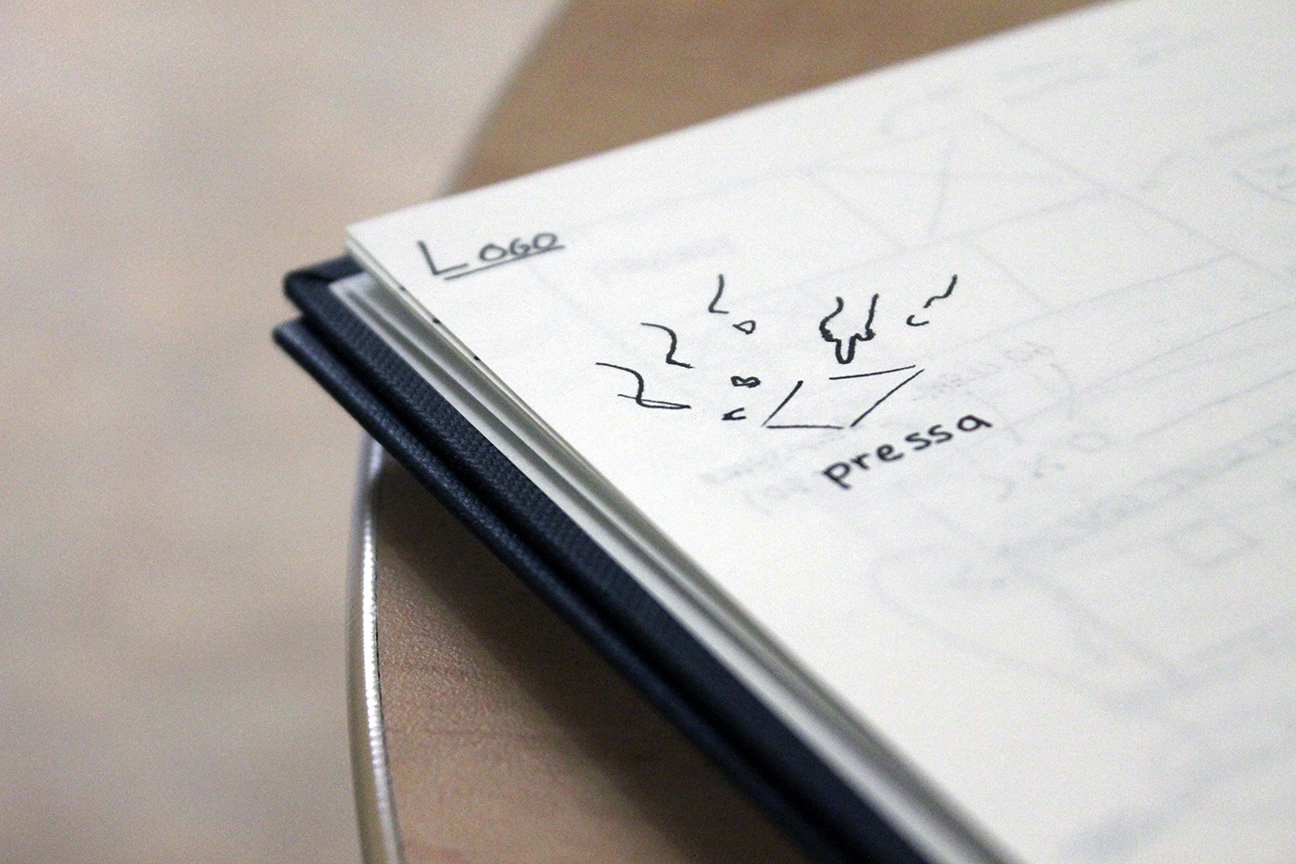 Logo
pressa